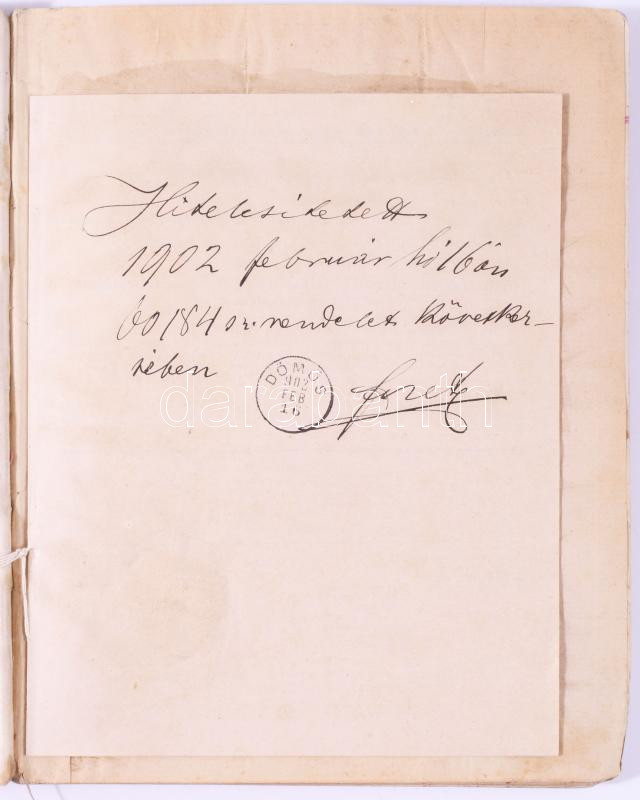 Hitelesitetett
1902 február hó 16án
60184 sz. rendelet következ-
tében
DÖMÖS
902
FEB
16
darabanth